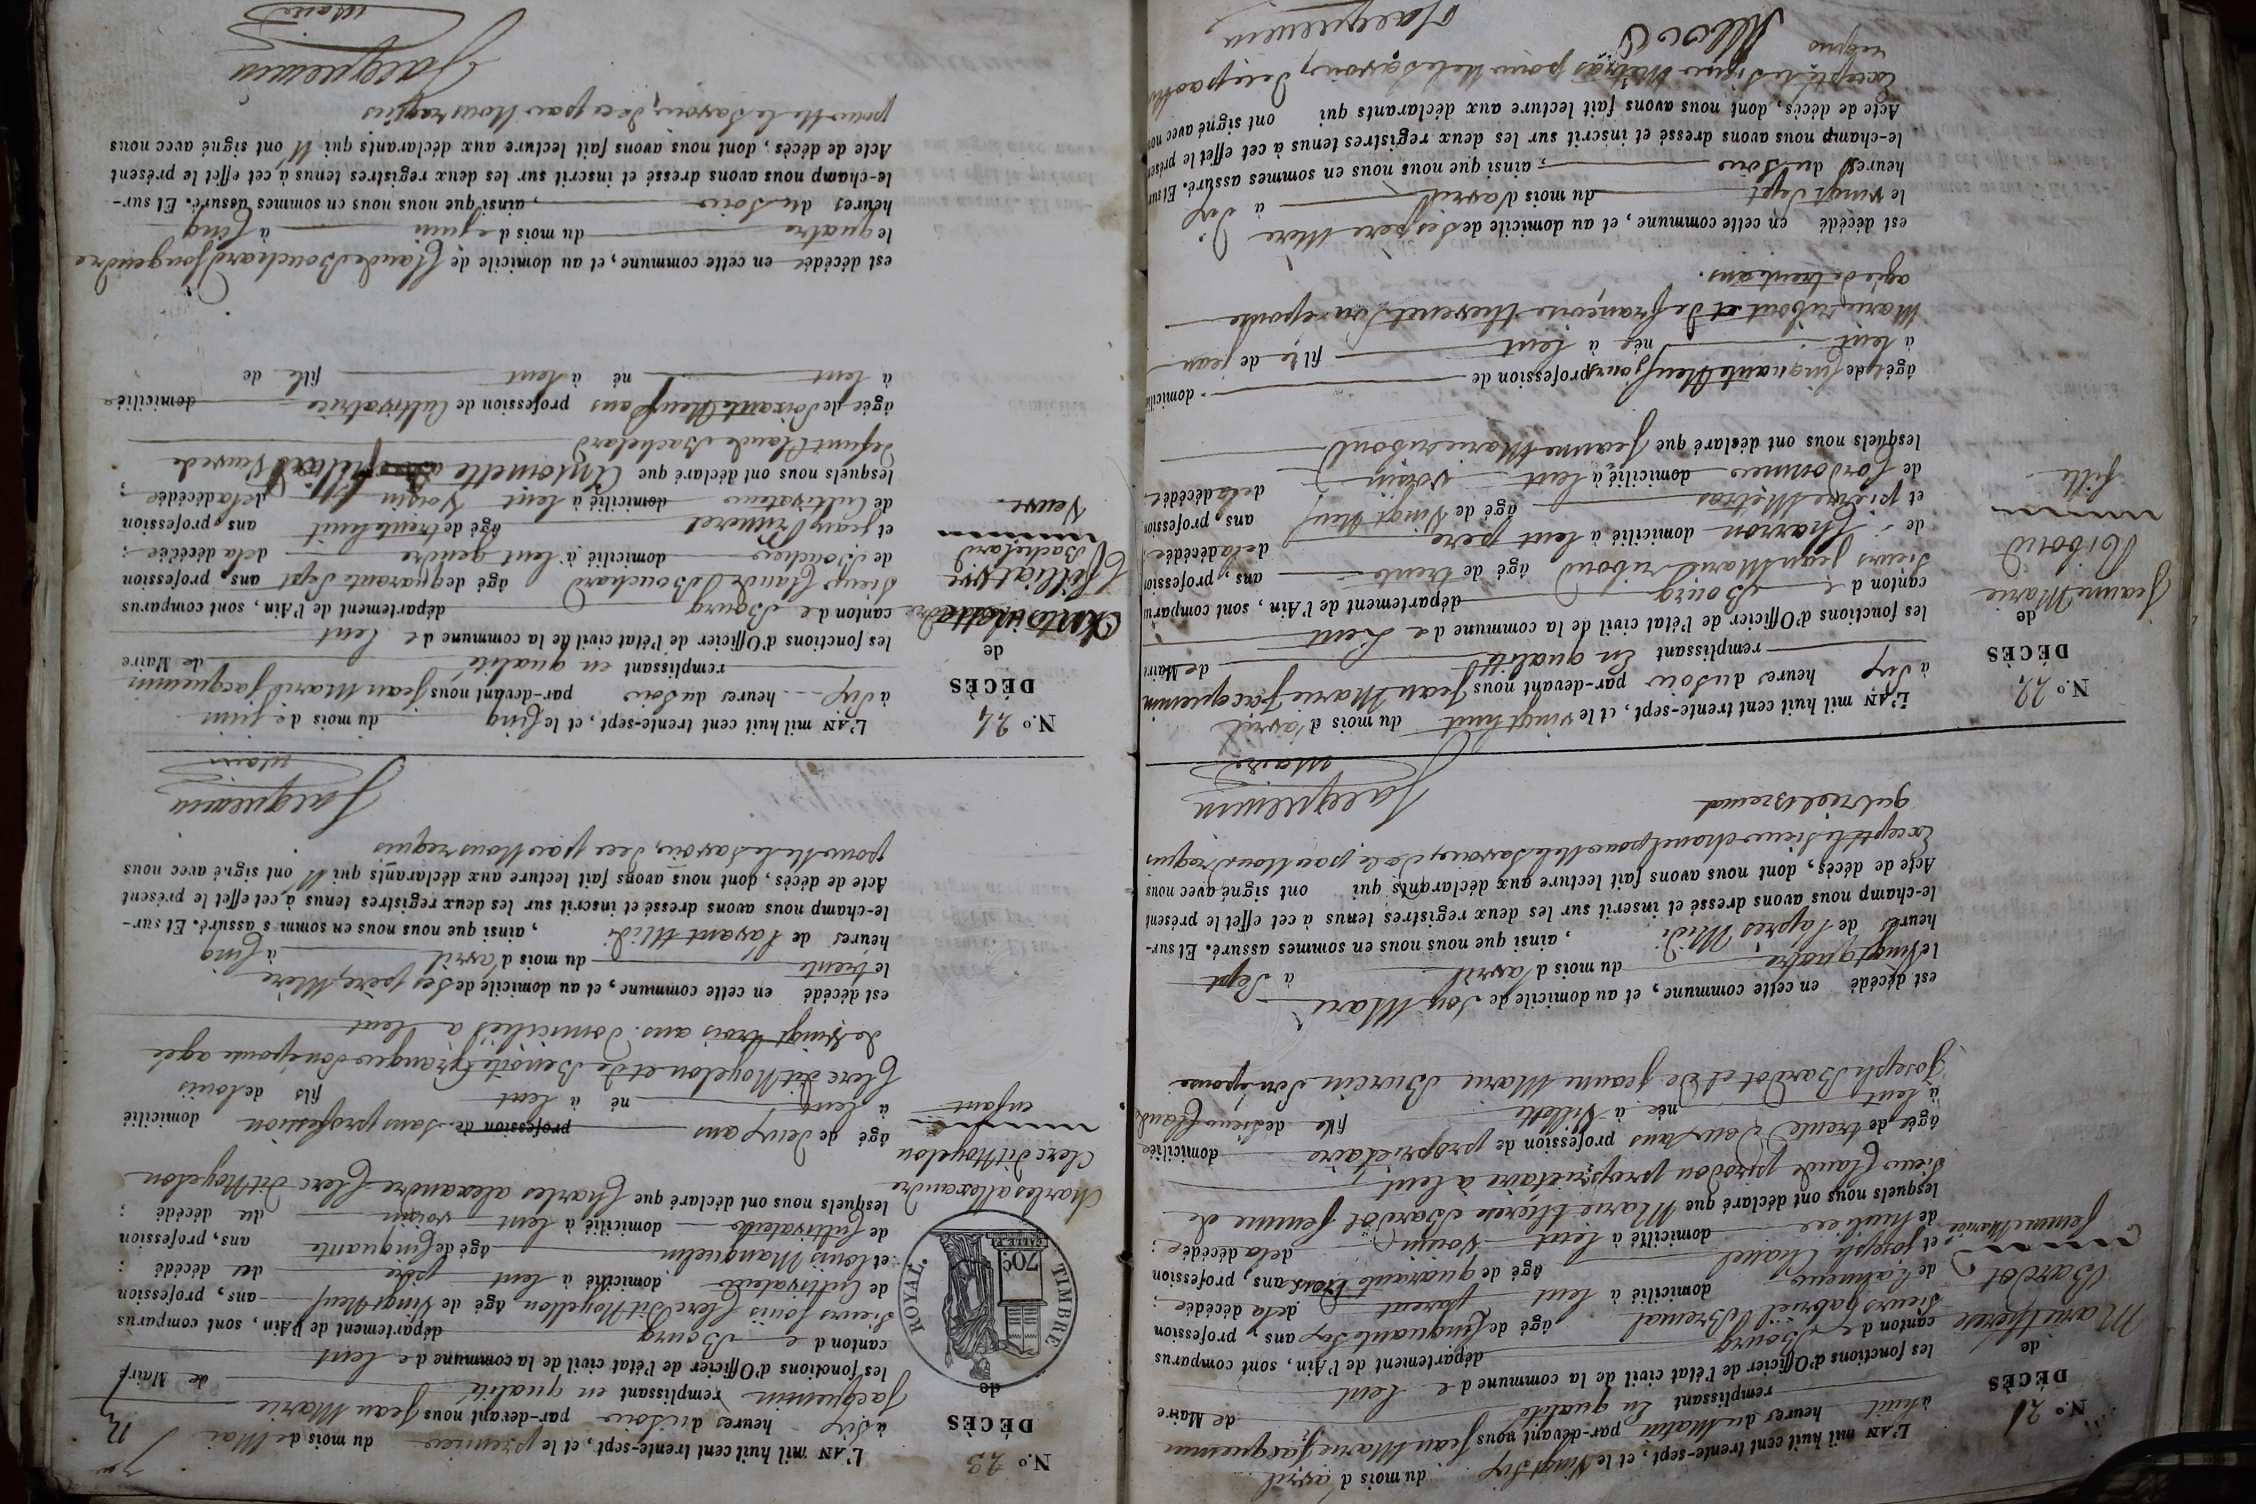 N.o 21
DÉCÈS
de
Marie thérèse
Bardot
femme Mariée
L'AN mil huit cent trente-sept, et le Vingt six du mois d'avril
à huit heures du Matin par-devant nous Jean Marie Jacquemin
remplissant En qualité de Maire
les fonctions d'Officier de l'état civil de la commune de Lent
canton de Bourg département de l'Ain, sont comparus
Sieurs gabriel Brevial âgé de Cinquante six ans, profession
de domicilié à Lent parent de la décédée;
et joseph Chanel âgé de quarante trois ans, profession
de domicilié à Lent Voisin de la décédée;
lesquels nous ont déclaré que Marie thérèse Bardot femme de
Sieur Claude prodon propriétaire à Lent
âgée de trente Deux ans profession de propriétaire domiciliée
à Lent née à Villette fille de Sieur Claude
Joseph Bardot et de Jeanne Marie Buirin Son épouse
est décédé en cette commune, et au domicile de Son Mari
le Vingt quatre du mois d'avril à Sept
heures de l'après Midi, ainsi que nous nous en sommes assuré. Et sur-
le-champ nous avons dressé et inscrit sur les deux registres tenus à cet effet le présent
Acte de décès, dont nous avons fait lecture aux déclarants qui ont signé avec nous
Excepté le Sieur Chanel pour Ne le Savoir, De ce par Nous requis
gabriel Brevial Jacquemin
Maire
N.o 22
DÉCÈS
de
Jeanne Marie
Riboud
fille
L'AN mil huit cent trente-sept, et le vingt huit du mois d'avril
à Six heures du Soir par-devant nous Jean Marie Jacquemin
remplissant En qualité de Maire
les fonctions d'Officier de l'état civil de la commune de Lent
canton de Bourg département de l'Ain, sont comparus
Sieurs Jean Marie riboud âgé de trente ans, profession
de Charron domicilié à Lent père de la décédée;
et pierre Metras âgé de Vingt Neuf ans, profession
de Cordonnier domicilié à Lent voisin de la décédée
lesquels nous ont déclaré que Jeanne Marie ribout
âgée de Cinquante Neuf jours profession de domicilié
à Lent née à Lent fille de jean
Marie ribout et de françoise thevenet Son épouse
agée de trente ans.
est décédé en cette commune, et au domicile de Ses père Mère
le vingt Sept du mois d'avril à Six
heures du Soir; ainsi que nous nous en sommes assuré. Et sur
le-champ nous avons dressé et inscrit sur les deux registres tenus à cet effet le présent
Acte de décès, dont nous avons fait lecture aux déclarants qui ont signé avec nous
Excepté le Sieur Metras pour Ne le Savoir, De ce par Nous
requis
Riboud Jacquemin
N.o 23
DÉCÈS
de
TIMBRE ROYAL.
70c
Charles alexandre
Clerc dit Noyelon
enfant
L'AN mil huit cent trente-sept, et le premier du mois de Mai
à Six heures du Soir par-devant nous Jean Marie
Jacquemin remplissant en qualité de Maire
les fonctions d'Officier de l'état civil de la commune de Lent
canton de Bourg département de l'Ain, sont comparus
Sieurs Louis Clerc dit Noyellon âgé de Vingt Neuf ans, profession
de Cultivateur domicilié à Lent père du décédé;
et Louis Manguelin âgé de Cinquante ans, profession
de Cultivateur domicilié à Lent voisin du décédé;
lesquels nous ont déclaré que Charles alexandre Clerc dit Noyelon
âgé de Deux ans profession de Sans profession domicilié
à Lent né à Lent fils de Louis
Clerc dit Noyelon et de Benoite Granger Son épouse agée
de Vingt trois ans. Domiciliés à Lent
est décédé en cette commune, et au domicile de Ses père, Mère
le trente du mois d'avril à Cinq
heures de l'avant Midi, ainsi que nous nous en sommes assuré. Et sur-
le-champ nous avons dressé et inscrit sur les deux registres tenus à cet effet le présent
Acte de décès, dont nous avons fait lecture aux déclarants qui N ont signé avec nous
pour Ne le Savoir, De ce par Nous requis
Jacquemin
Maire
N.o 24
DÉCÈS
de
Antoinette
Bachelard
Veuve
L'AN mil huit cent trente-sept, et le Cinq du mois de juin
à Six heures du Soir par-devant nous Jean Marie Jacquemin
remplissant en qualité de Maire
les fonctions d'Officier de l'état civil de la commune de Lent
canton de Bourg département de l'Ain, sont comparus
Sieurs Claude Bouchard âgé de quarante Sept ans, profession
de Boucher domicilié à Lent gendre de la décédée;
et Jean âgé de trente huit ans, profession
de Cultivateur domicilié à Lent Voisin de la décédée;
lesquels nous ont déclaré que Antoinette Veuve de
Defunt Claude Bachelard
âgée de Soixante Neuf ans profession de Cultivatrice domiciliée
à Lent né à Lent fille de
est décédée en cette commune, et au domicile de Claude Bouchard Son gendre
le quatre du mois de juin à Cinq
heures du Soir, ainsi que nous nous en sommes assuré. Et sur-
le-champ nous avons dressé et inscrit sur les deux registres tenus à cet effet le présent
Acte de décès, dont nous avons fait lecture aux déclarants qui N ont signé avec nous
pour Ne le Savoir, De ce par Nous requis
Jacquemin
Maire